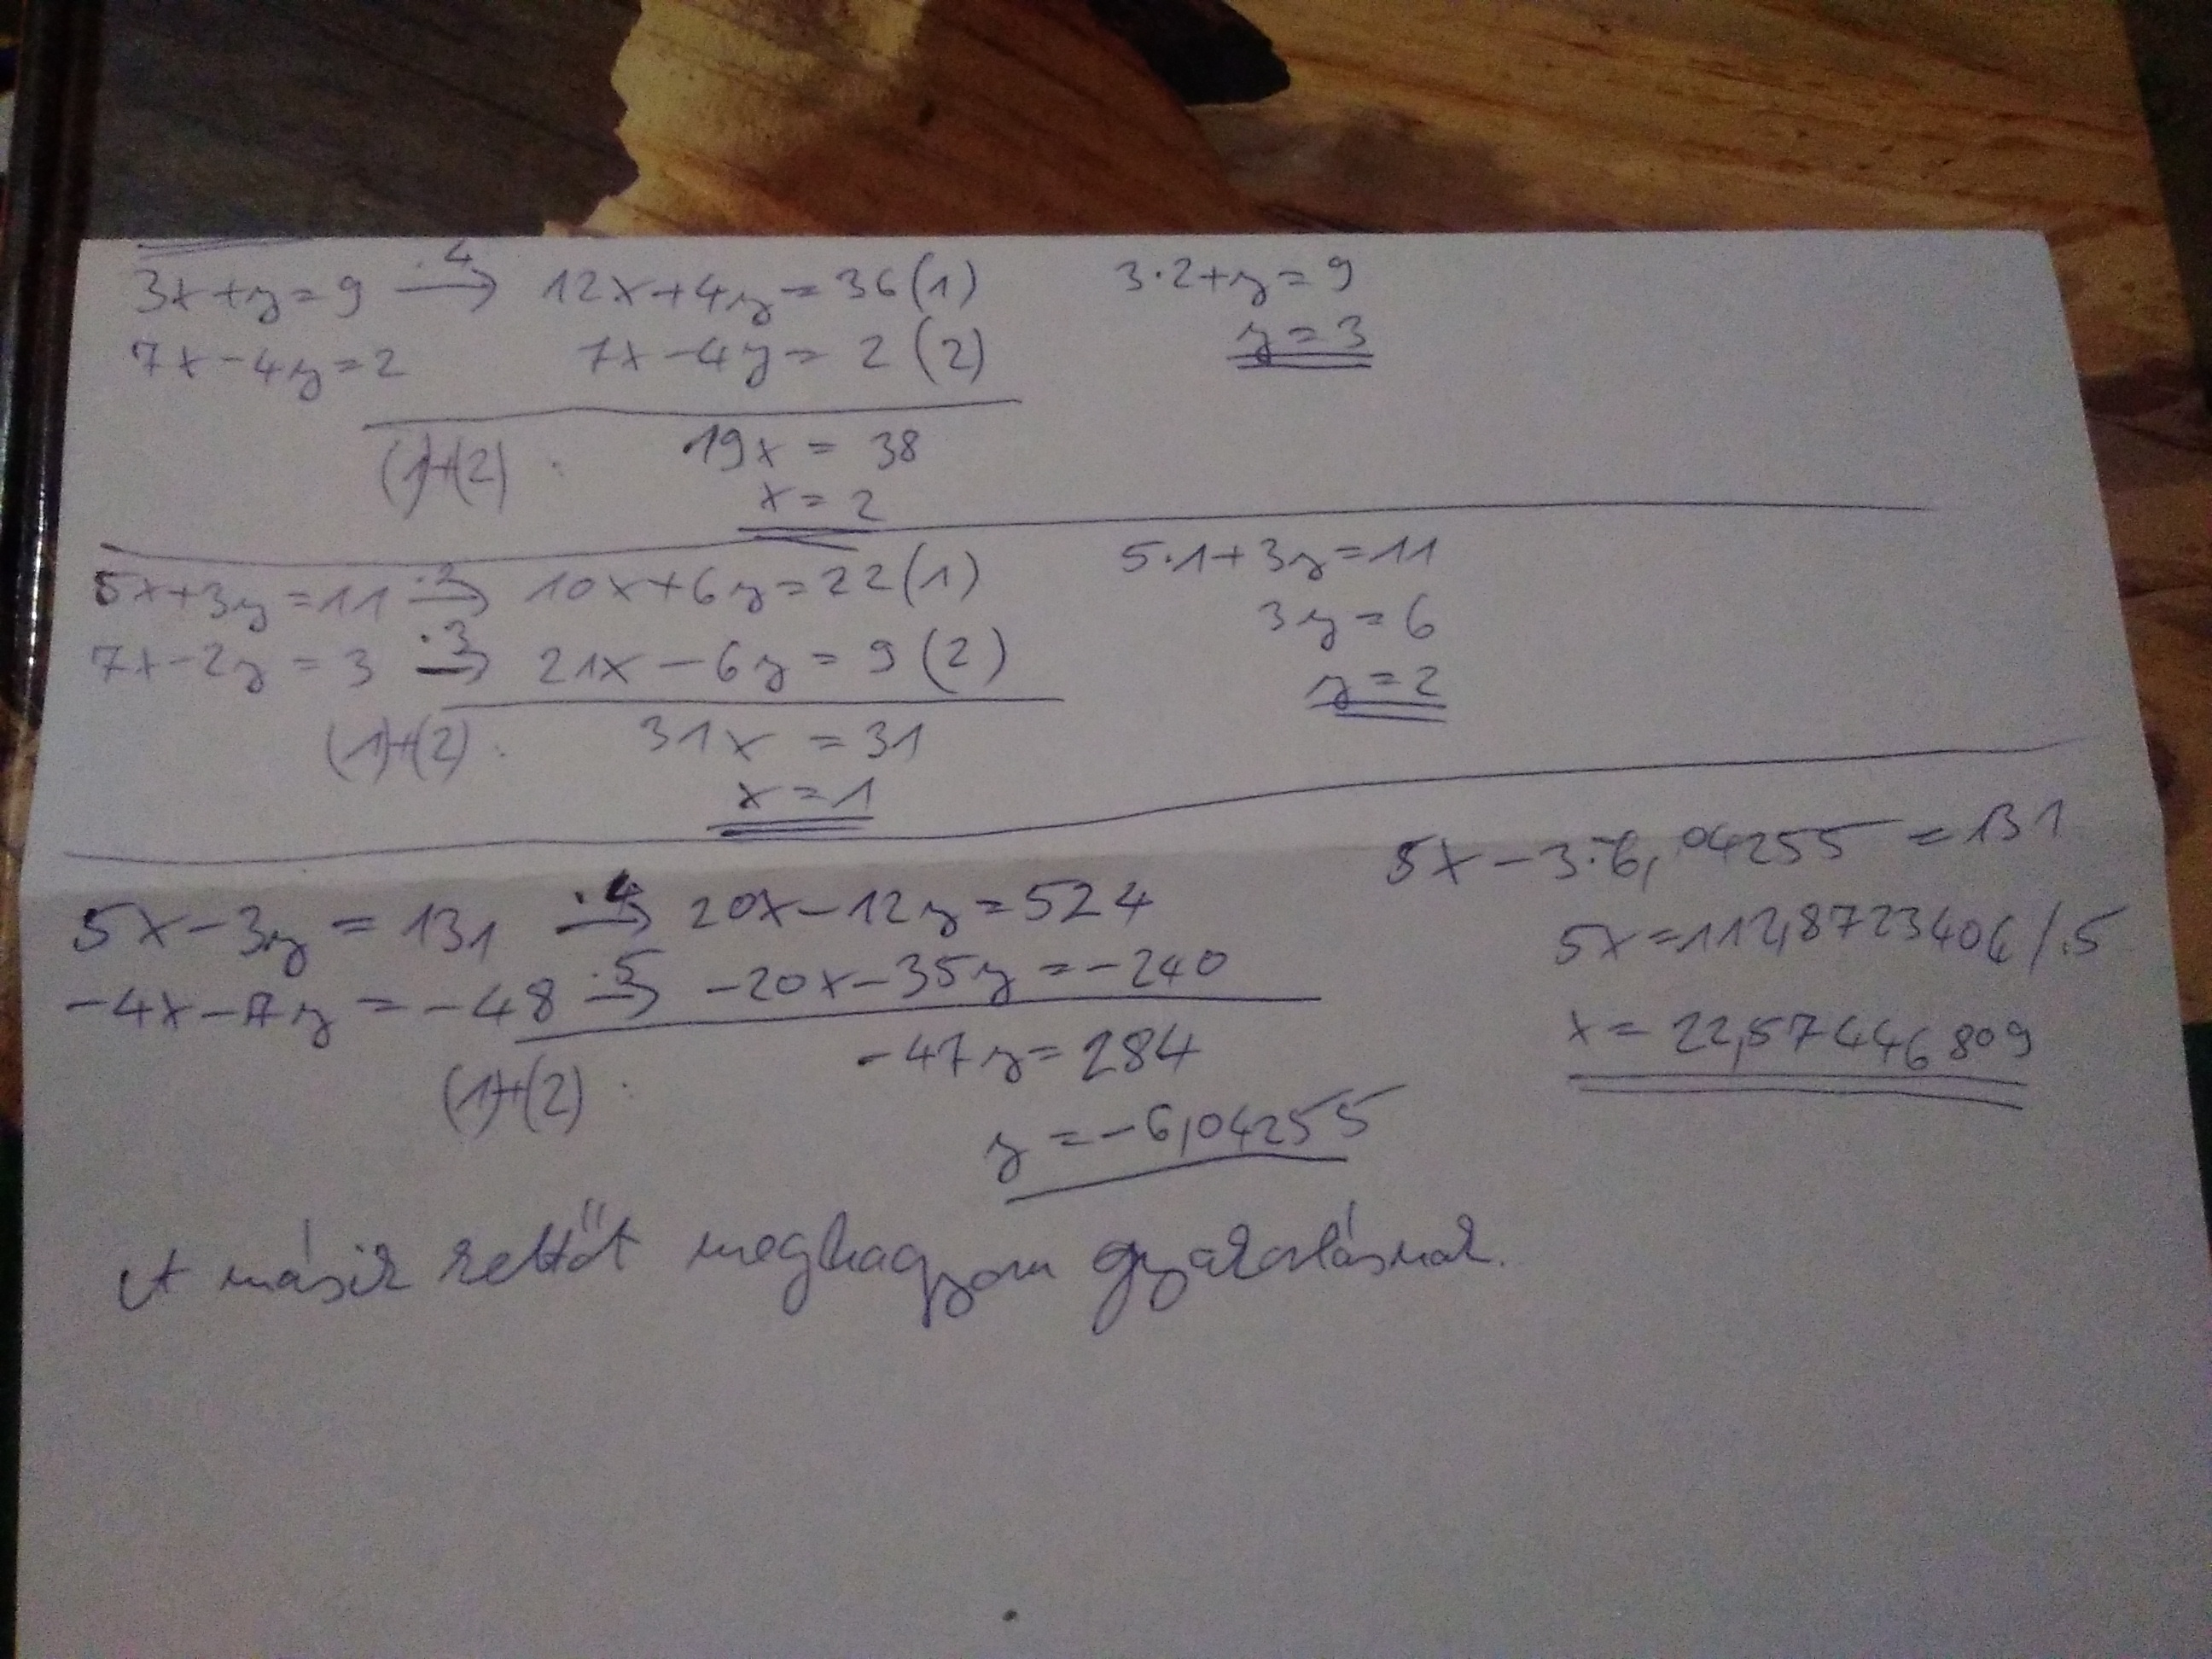 3x+y=9 →·4 12x+4y=36 (1) 3·2+y=9
7x-4y=2 7x-4y=2 (2) y=3
(1)+(2): 19x = 38
x=2
5x+3y=11 →·2 10x+6y=22 (1) 5·1+3y=11
7x-2y=3 →·3 21x-6y=9 (2) 3y=6
(1)+(2): 31x=31 y=2
x=1
5x-3·-6,04255=131
5x-3y=131 →·4 20x-12y=524 5x=112,8723404 /:5
-4x-7y=-48 →·5 -20x-35y=-240 x=22,57446809
(1)+(2): -47y=284
y=-6,04255
A másik kettőt meghagyom gyakorlásnak.